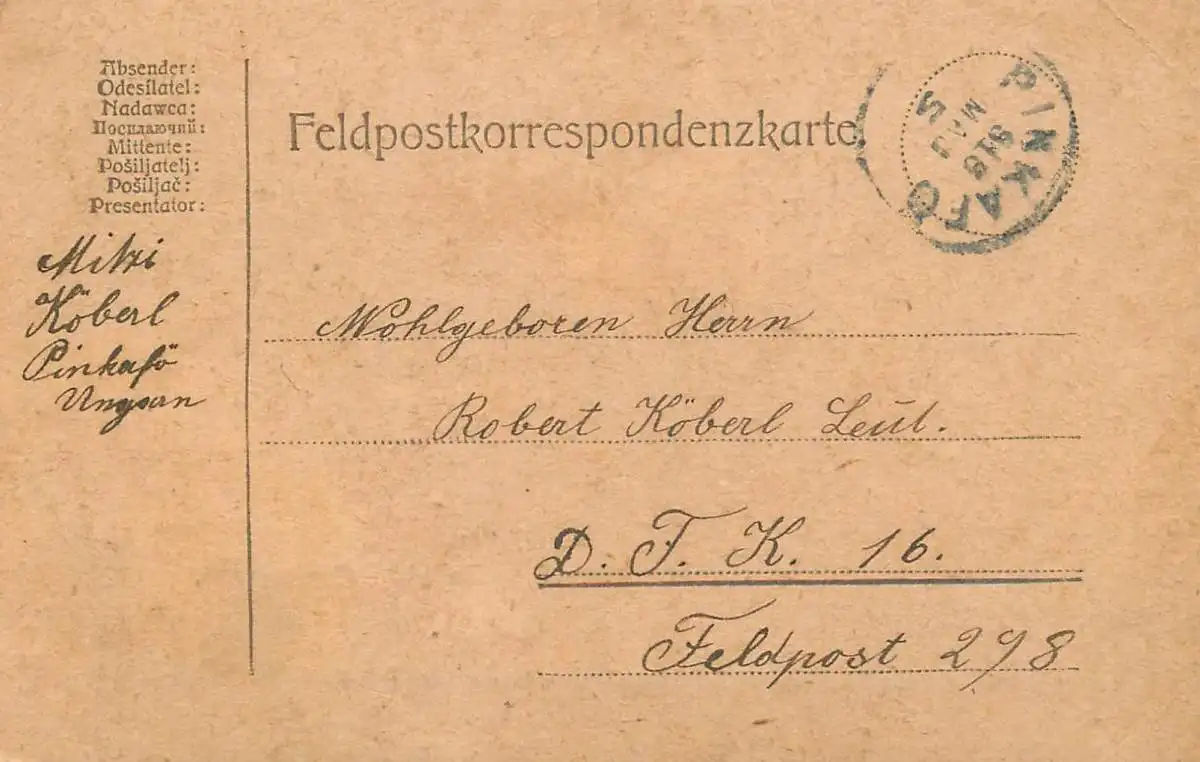 Absender:
Odesílatel:
Nadawca:
Посилаючий:
Mittente:
Pošiljatelj:
Pošiljač:
Presentator:
Feldpostkorrespondenzkarte
PINKAFŐ
918
MÁJ
5
Mitzi
Köberl
Pinkafö
Ungarn
Wohlgeboren Herrn
Robert Köberl Leut.
D. T. K. 16.
Feldpost 298